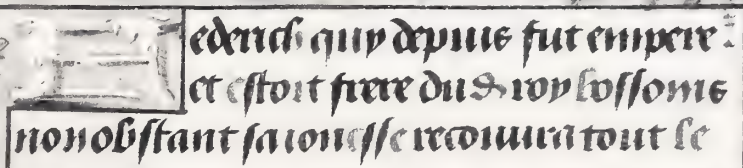 ederich quy depuis fut empere
et estoit frere dud roy lossonis
nonobstant sa ionesse recouura tout le